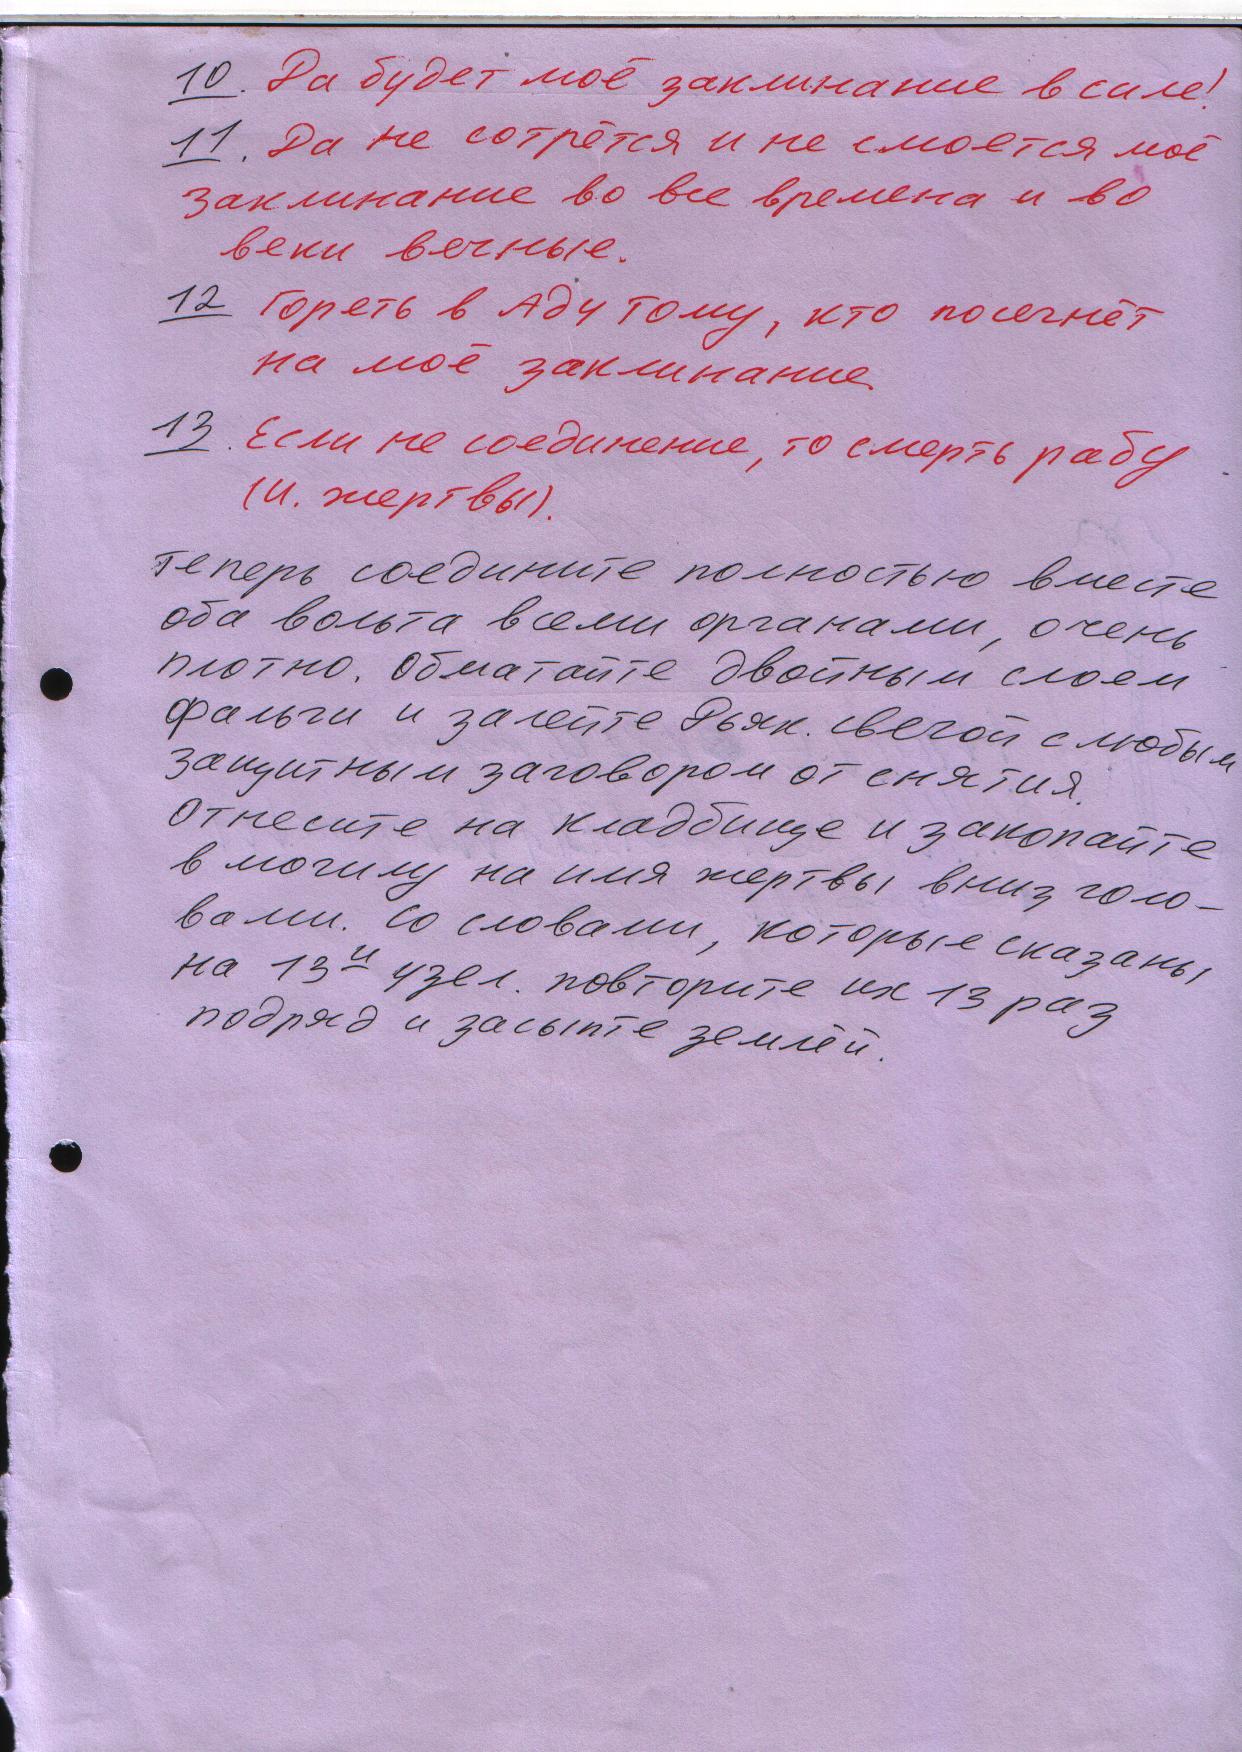 10. Да будет моё заклинание в силе!
11. Да не сотрётся и не смоется моё
заклинание во все времена и во
веки вечные.
12 Гореть в Аду тому, кто посягнёт
на моё заклинание.
13. Если не соединение, то смерть рабу
(и. жертвы).
Теперь соедините полностью вместе
оба вольта всеми органами, очень
плотно. Обматайте двойным слоем
фальги и залейте Дьяк. свечой с любым
защитным заговором от снятия.
Отнесите на кладбище и закопайте
в могилу на имя жертвы вниз голо-
вами. Со словами, которые сказаны
на 13й узел. повторите их 13 раз
подряд и засыпте землёй.